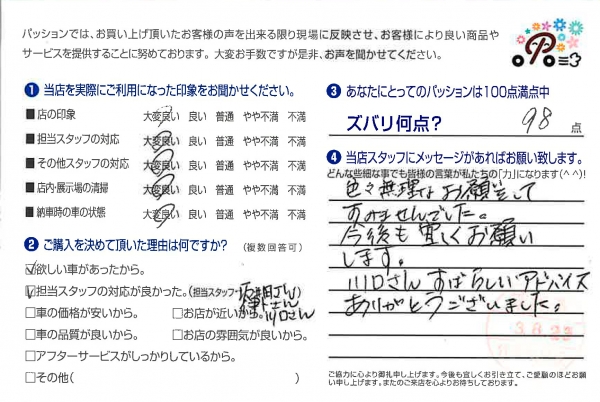 パッションでは、お買い上げ頂いたお客様の声を出来る限り現場に反映させ、お客様により良い商品や
サービスを提供することに努めております。 大変お手数ですが是非、お声を聞かせてください。
1 当店を実際にご利用になった印象をお聞かせください。
■店の印象 大変良い 良い 普通 やや不満 不満
■担当スタッフの対応 大変良い 良い 普通 やや不満 不満
■その他スタッフの対応 大変良い 良い 普通 やや不満 不満
■店内・展示場の清掃 大変良い 良い 普通 やや不満 不満
■納車時の車の状態 大変良い 良い 普通 やや不満 不満
2 ご購入を決めて頂いた理由は何ですか? (複数回答可)
☑欲しい車があったから。
☑担当スタッフの対応が良かった。(担当スタッフ・
さん
川口さん
□車の価格が安いから。 □お店が近いから。
□車の品質が良いから。 □お店の雰囲気が良いから。
□アフターサービスがしっかりしているから。
□その他( )
3 あなたにとってのパッションは100点満点中
ズバリ何点? 98 点
4 当店スタッフにメッセージがあればお願い致します。
どんな些細な事でも皆様の言葉が私たちの「力」になります(^^)!
色々無理なお願いして
すみませんでした。
今後も宜しくお願い
します。
川口さん すばらしいアドバイス
ありがとうございました。
3.6.23
ご協力に心より御礼申し上げます。今後も宜しくお引き立て、ご愛顧のほどお願
い申し上げます。またのご来店を心よりお待ちしております。